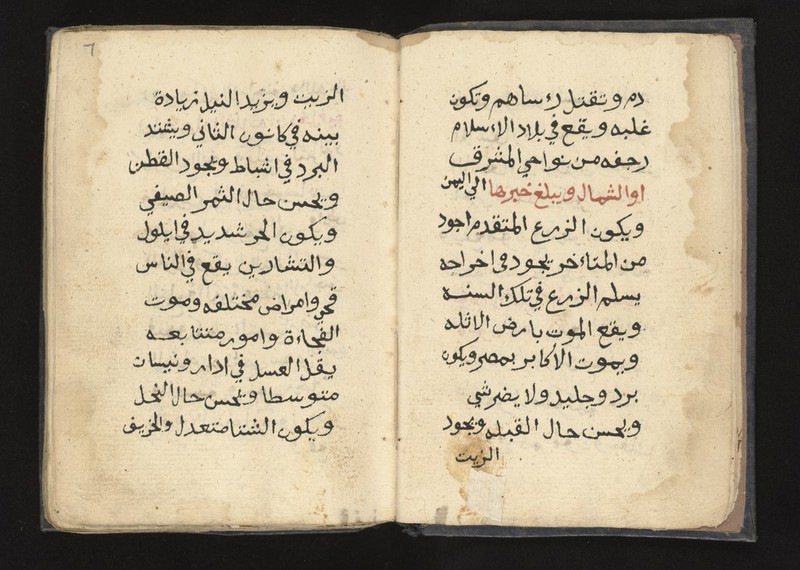 دم وتقتل رساهم وتكون
غلبه ويقع في بلاد الاسلام
رجفه من نواحي المشرق
او الشمال ويبلغ خبرها الي اليمن
ويكون الزرع المتقدم اجود
من المتاخر يجود في اخراجه
يسلم الزرع في تلك السنه
ويقع الموت بارض الاثله
ويموت الأكابر بمصر ويكون
برد وجليد ولا يضر شي
ويحسن حال القبله ويجود
الزيت
٦
الزيت ويزيد النيل زيادة
بينه في كانون الثاني ويشتد
البرد في اشباط ويجود القطن
ويحسن حال الثمر الصيفي
ويكون الحر شديد في ايلول
والتشارين يقع في الناس
وامراض مختلفه وموت
الفجاءة وامور متتابعه
يقل العسل في ادار ونيسان
متوسطا ويحسن حال النحل
ويكون الشتا متعدل والخريف